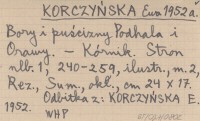 KORCZYŃSKA Ewa 1952 a.
Bory i puścizny Podhala i
Orawy. – Kórnik. Stron
nlb. 1, 240-259, ilustr., m. 2,
Rez., Sum., okł., cm 24 x 17.
Odbitka z: KORCZYŃSKA E.
1952. WHP